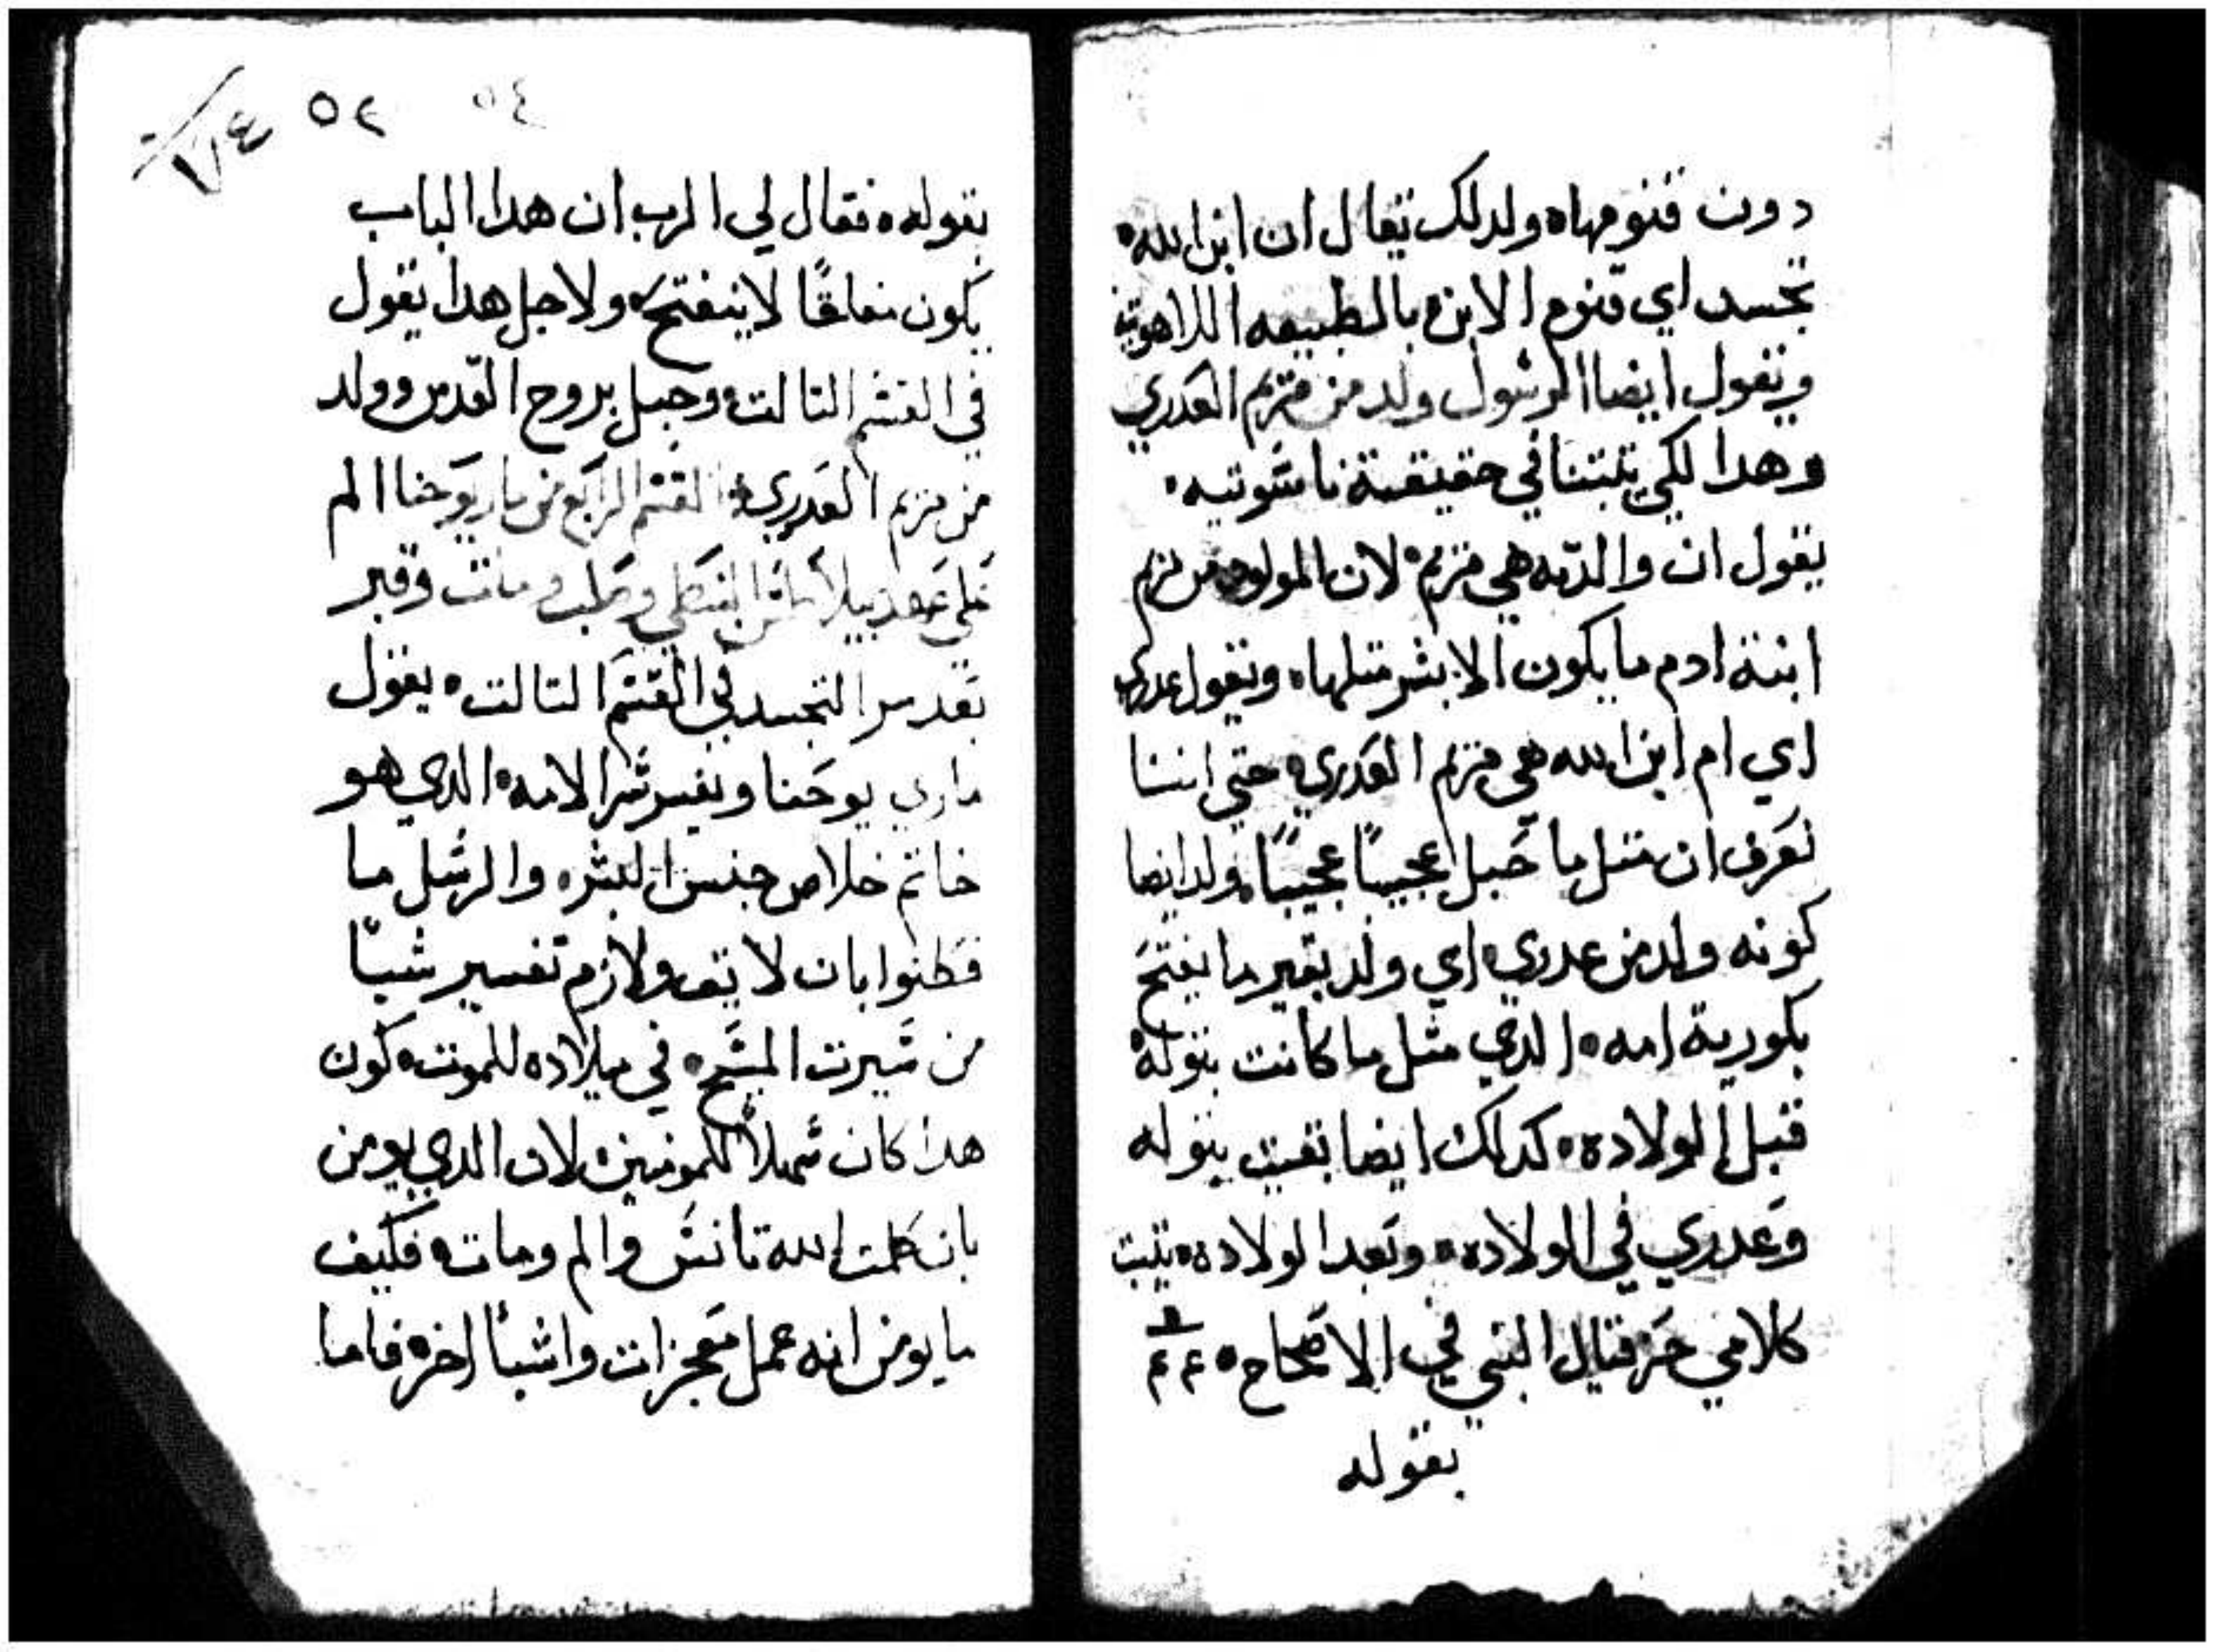 دون قنومها ولدلك يقال ان ابن الله
تجسد اي قنوم الابن بالطبيعه اللاهوتيه
ويقول ايضا الرسول ولد من مريم العدري
وهدا لكي يتبتنا في حقيقة ناسوتيه
يقول ان والدته هي مريم لان المولود من مريم
ابنة ادم ما يكون الا بشر متلها ويقول عدري
اي ام ابن الله هي مريم العدري حتي اننا
نعرف ان متل ما حبل عجيبًا عجيبًا ولد ايضا
كونه ولد من عدري اي ولد بغير ما يفتح
بكورية امه الدي مثل ما كانت بتوله
قبل الولاده كدلك ايضا بقيت بتوله
وعدري في الولاده وبعد الولاده يتبت
كلامي حزقيال النبي في الاصحاح ٤٤
بقوله
٥٤ ٥٢
بقوله فقال لي الرب ان هدا الباب
يكون مغلقًا لا ينفتح ولاجل هدا يقول
في القسم التالت وحبل بروح القدس وولد
من مريم العدري القسم الرابع من مار يوحنا الم
علي عهد بيلاطس البنطي وصلب ومات وقبر
بعد سر التجسد في القسم التالت يقول
ماري يوحنا ويفسر سر الالامه الدي هو
خاتم خلاص جنس البشر والرسل ما
فطنوا بان لايق ولازم تفسير شيًا
من سيرت المسيح في ميلاده للموت كون
هدا كان سهلاً للمومنين لان الدي يومن
بان كلمت الله تانس والم ومات فكيف
ما يومن انه عمل معجزات واشيأ اخر فاما